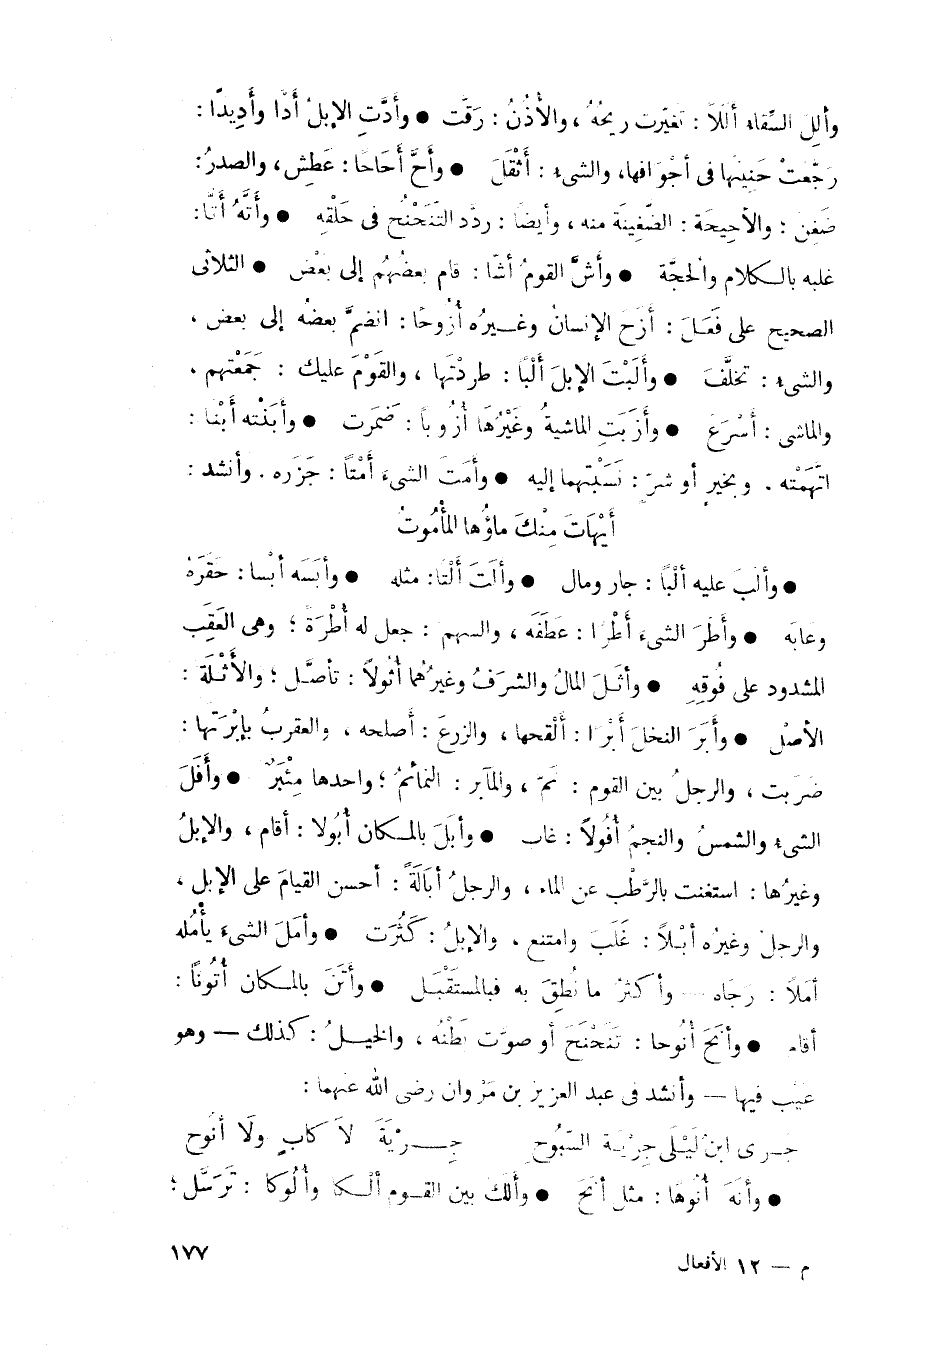 وأَلِلَ السِّقاء أَلَلاً : تغيّرت ريحُهُ ، والأُذُنُ : رَقَّت ● وأَدَّتِ الإبلُ أَدًّا وأَدِيدًا :
رَجَّعتْ حَنِينَها فى أجْوافها، والشىء : أَثْقَلَ ● وأَحَّ أَحَاحًا : عَطِش ، والصدرُ :
ضَغِنَ ؛ والأَحِيحَة : الضّغِينَة منه ، وأيضًا : ردّد التَنَحْنُح فى حَلْقِهِ ● وأَتَّهُ أَتًّا :
غلبه بالكلام والحُجَّة ● وأَشَّ القومُ أَشًّا : قام بعضُهُم إلى بَعْض ● الثلاثى
الصحيح على فَعَلَ : أَزَحَ الإنسانُ وغيرُه أُزُوحًا : انضمَّ بعضُه إلى بعض ،
والشىء : تخلَّفَ ● وأَلَبْتَ الإبلَ أَلْبًا : طردْتَها ، والقَوْمَ عليك : جَمَعْتهم .
والماشى : أَسْرَعَ ● وأَزَبَتِ الماشيةُ وغَيْرُهَا أُزُوباً : ضَمَرت ● وأَبَنْته أَبْنًا :
اتَّهَمْته . وبخيرٍ أو شرّ : نَسَبْتَهما إليه ● وأَمَتَ الشىءَ أَمْتاً : حَزَره . وأنشد :
أَيْهَاتَ مِنْكَ ماؤُها المأْمُوتُ
● وأَلَبَ عليه أَلْبًا : جار ومال ● وأَلَتَ أَلْتًا : مثله ● وأَبَسَه أَبْسا : حَقَرَهُ
وعابَه ● وأَطَرَ الشىءَ أَطْرًا : عَطَفَه ، والسهمَ : جعل له أُطْرَةً ؛ وهى العَقِب
المشدود على فُوقِهِ ● وأَثَلَ المالُ والشرَفُ وغيرُهُما أُثُولاً : تأصَّل ؛ والأَثْلَة :
الأصْل ● وأَبَرَ النخلَ أَبْرًا : أَلْقحها ، والزرعَ : أصلحه ، والعقربُ بإبْرَتها :
ضرَبت ، والرجلُ بين القوم : نَمّ ، والمآبر : النمائمُ ؛ واحدها مِئْبَرٌ ● وأَفَلَ
الشىء والشمسُ والنجمُ أُفُولاً : غاب ● وأبَلَ بالمكان أُبُولا : أقام ، والإبلُ
وغيرُها : استغنت بالرَّطْب عن الماء ، والرجلُ أَبَالَةً : أحسن القيامَ على الإبل ،
والرجلُ وغيرُه أَبْلاً : غَلَبَ وامتنع ، والإبلُ : كَثُرَت ● وأَمَلَ الشىءَ يأْمُله
أَمَلاً : رَجَاه — وأكثرُ ما نُطِقَ به فبالمستَقْبَل ● وأَتَنَ بالمكان أُتُونًا :
أقام ● وأَنَحَ أُنُوحا : تَنَحْنَحَ أو صوّت بَطْنُه ، والخيلُ : كذلك — وهو
عَيْب فيها — وأنشد فى عبد العزيز بن مَرْوان رضى الله عنهما :
جَرى ابنُ لَيْلَى جِرْيَةَ السَّبُوحِ جِرْيَةَ لاَ كابٍ ولَا أَنُوحِ
● وأَنَهَ أُنُوهًا : مثل أَنَحَ ● وأَلَكَ بين القوم أَلْكا وأُلُوكا : تَرَسَّلَ ؛
م — ١٢ الأفعال ١٧٧